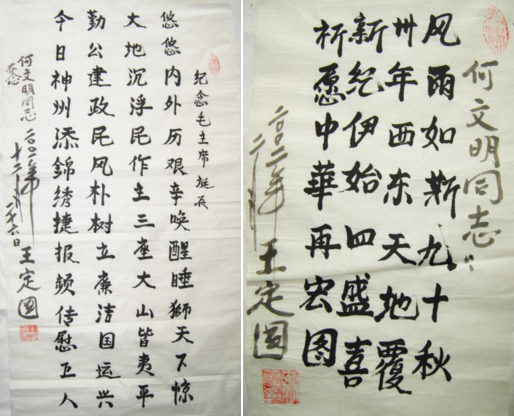 纪念毛主席
悠悠内外历艰辛唤醒睡狮天下惊
大地沉浮民作主三座大山皆夷平
勤公建政民风朴树立廉洁国运兴
今日神州添錦绣捷报频传慰巨人
何文明同志
十二月二十六日
王定国
何文明同志
风雨如斯九十秋
卅年西东天地覆
新纪伊始四盛喜
祈愿中華再宏图
王定国